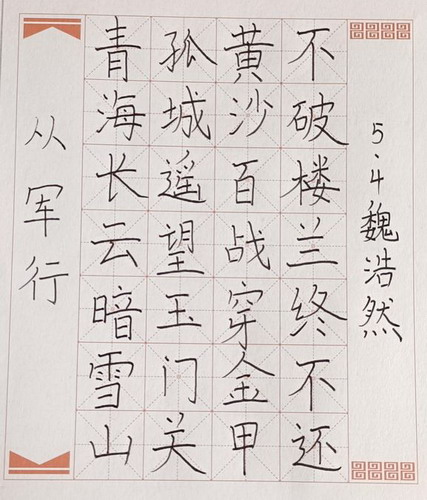 从军行
青海长云暗雪山
孤城遥望玉门关
黄沙百战穿金甲
不破楼兰终不还
5.4魏浩然